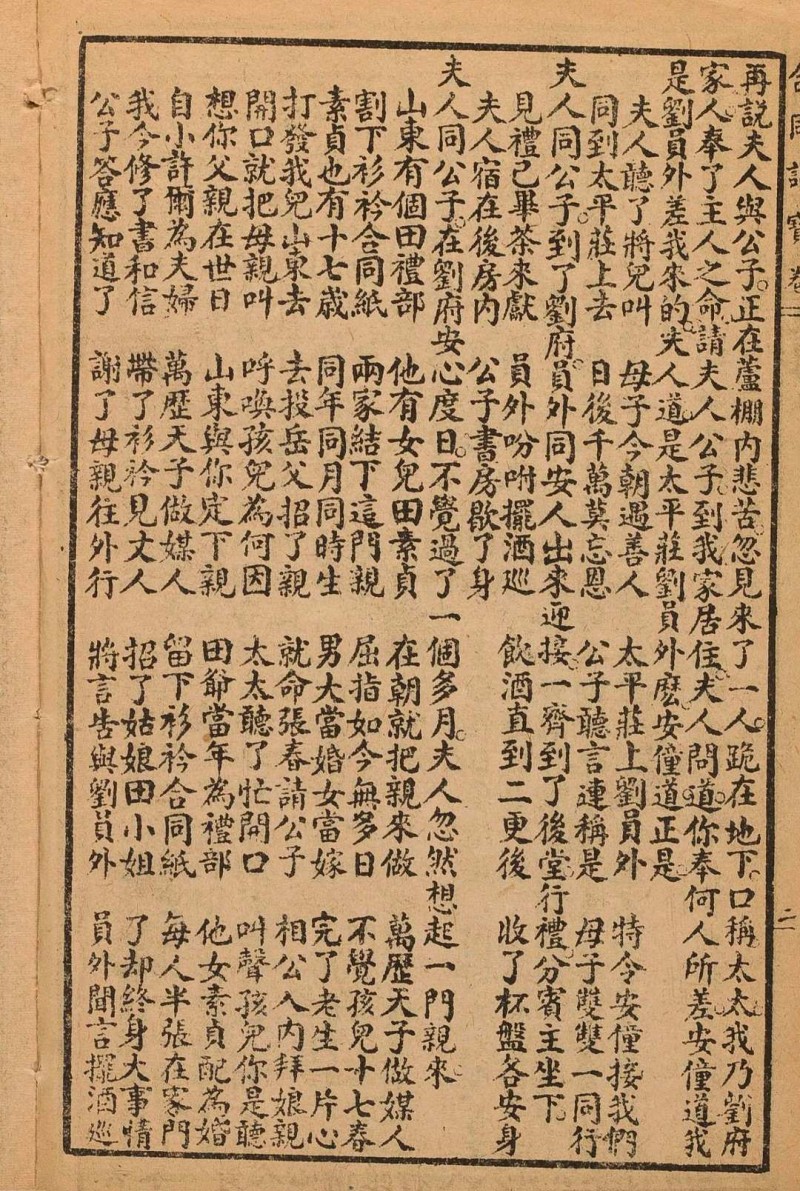 合同記寶卷
二
再說夫人與公子。正在蘆棚內悲苦。忽見來了一人。跪在地下。口稱太太。我乃劉府
家人。奉了主人之命。請夫人公子。到我家居住。夫人問道。你奉何人所差。安僮道。我
是劉員外差我來的。夫人道。是太平莊劉員外麽。安僮道。正是。
夫人聽了將兒叫 母子今朝遇善人 太平莊上劉員外 特令安僮接我們
同到太平莊上去 日後千萬莫忘恩 公子聽言連稱是 母子雙雙一同行
夫人同公子。到了劉府。員外同安人出來迎接。一齊到了後堂。行禮。分賓主坐下。
見禮已畢茶來獻 員外吩咐擺酒巡 飲酒直到二更後 收了杯盤各安身
夫人宿在後房內 公子書房歇了身
夫人同公子。在劉府安心度日。不覺過了一個多月。夫人忽然想起一門親來。
山東有個田禮部 他有女兒田素貞 在朝就把親來做 萬歷天子做媒人
割下衫衿合同紙 兩家結下這門親 屈指如今無多日 不覺孩兒十七春
素貞也有十七歲 同年同月同時生 男大當婚女當嫁 完了老生一片心
打發我兒山東去 去投岳父招了親 就命張春請公子 相公入內拜娘親
開口就把母親叫 呼喚孩兒為何因 太太聽了忙開口 叫聲孩兒你是聽
想你父親在世日 山東與你定下親 田爺當年為禮部 他女素貞配為婚
自小許爾為夫婦 萬歷天子做媒人 留下衫衿合同紙 每人半張在家門
我今修了書和信 帶了衫衿見丈人 招了姑娘田小姐 了却終身大事情
公子答應知道了 謝了母親往外行 將言告與劉員外 員外聞言擺酒巡